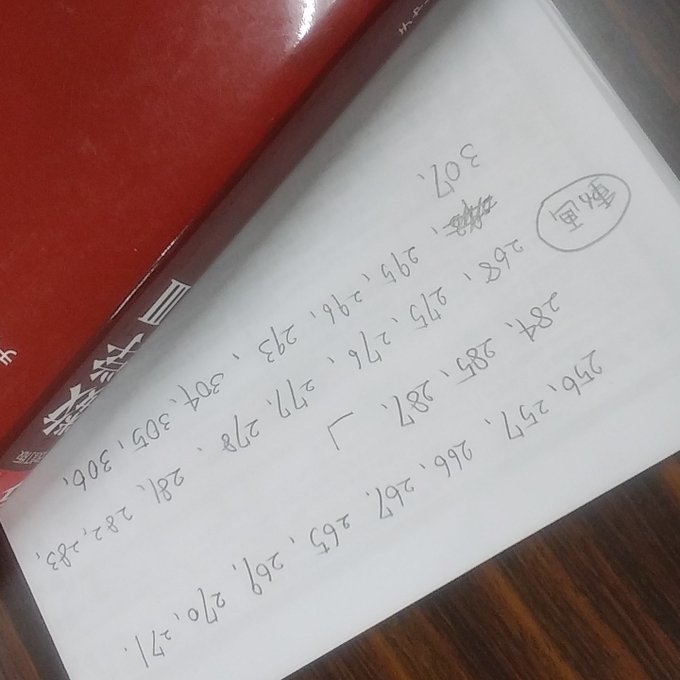 256、257、266、267、265、269、270、271.
284、285、287、」
動画 268、275、276、277、278、281、282、283、
295、296、293、304、305、306、
307、